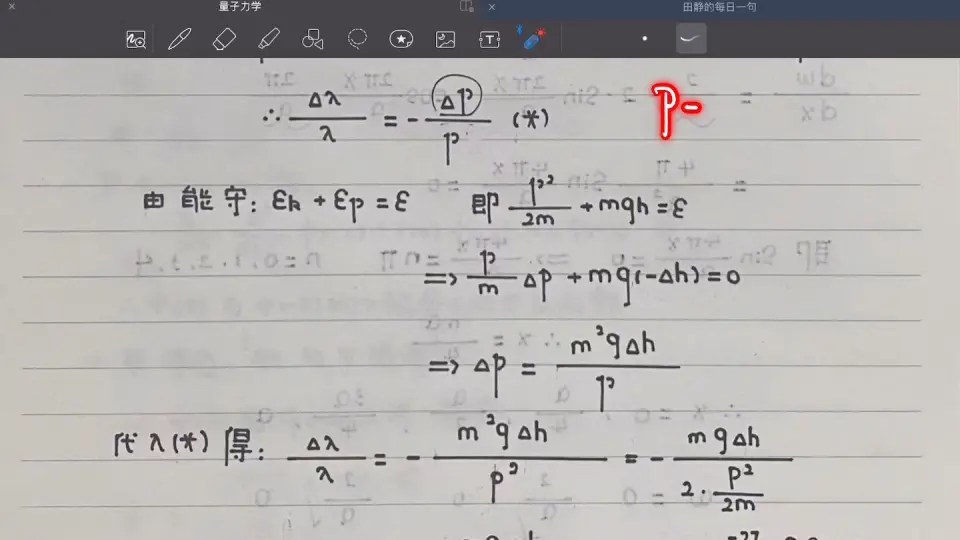 量子力学
田静的每日一句
∴ Δλ/λ = - Δp/p (*)
p-
由能守: εk + εp = ε 即 p²/2m + mgh = ε
=> p/m Δp + mg(-Δh) = 0
=> Δp = m²gΔh/p
代入(*)得: Δλ/λ = - m²gΔh/p² = - mgΔh/2·p²/2m